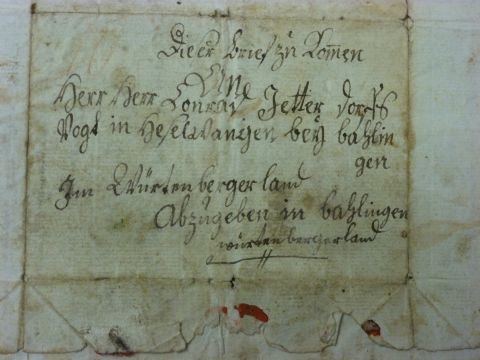 Dieer brief zu Kommen
Ane
Herr Herr Conrad Jetter dorffs
Vogt in Heselwangen bey bahlin
gen
Im Würtenbergerland
Abzugeben in bahlingen
würtenbergerland